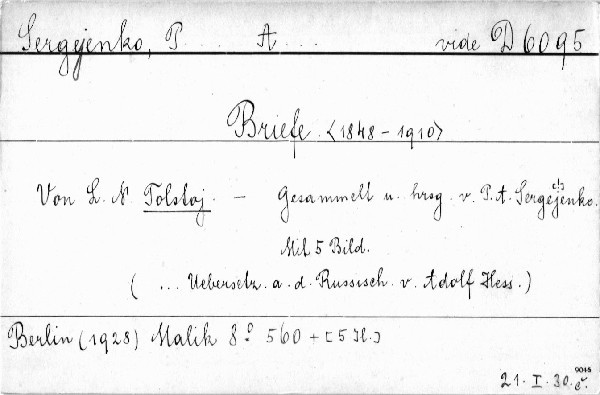 Sergejenko, P... A... vide D 6095
Briefe. <1848-1910>
Von L. N. Tolstoj. — Gesammelt u. hrsg. v. P. A. Sergejenko.
Mit 5 Bild.
(... Uebersetz. a. d. Russisch. v. Adolf Hess.)
Berlin (1928) Malik 8° 560 + [5 H.]
21. I. 30.